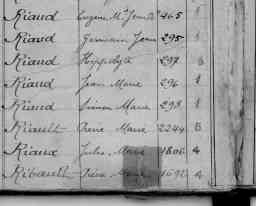 Riaud Eugène M. Jean Bte 465 1
Riaud Germain Jean 295 1
Riaud Hyppolyte 297 B
Riaud Jean Marie 296 1
Riaud Simon Marie 298 1
Riault René Marie 2244 B
Riaux Jules Marie 1806 4
Ribault Marie 1692 4